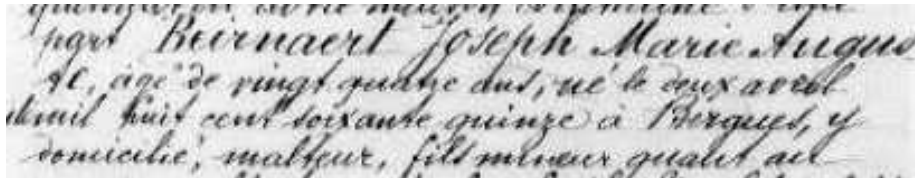 part Beirnaert Joseph Marie Augus
te, âgé de vingt quatre ans, né le deux avril
mil huit cent soixante quinze à Bergues, y
domicilié, malteur, fils mineur quant au